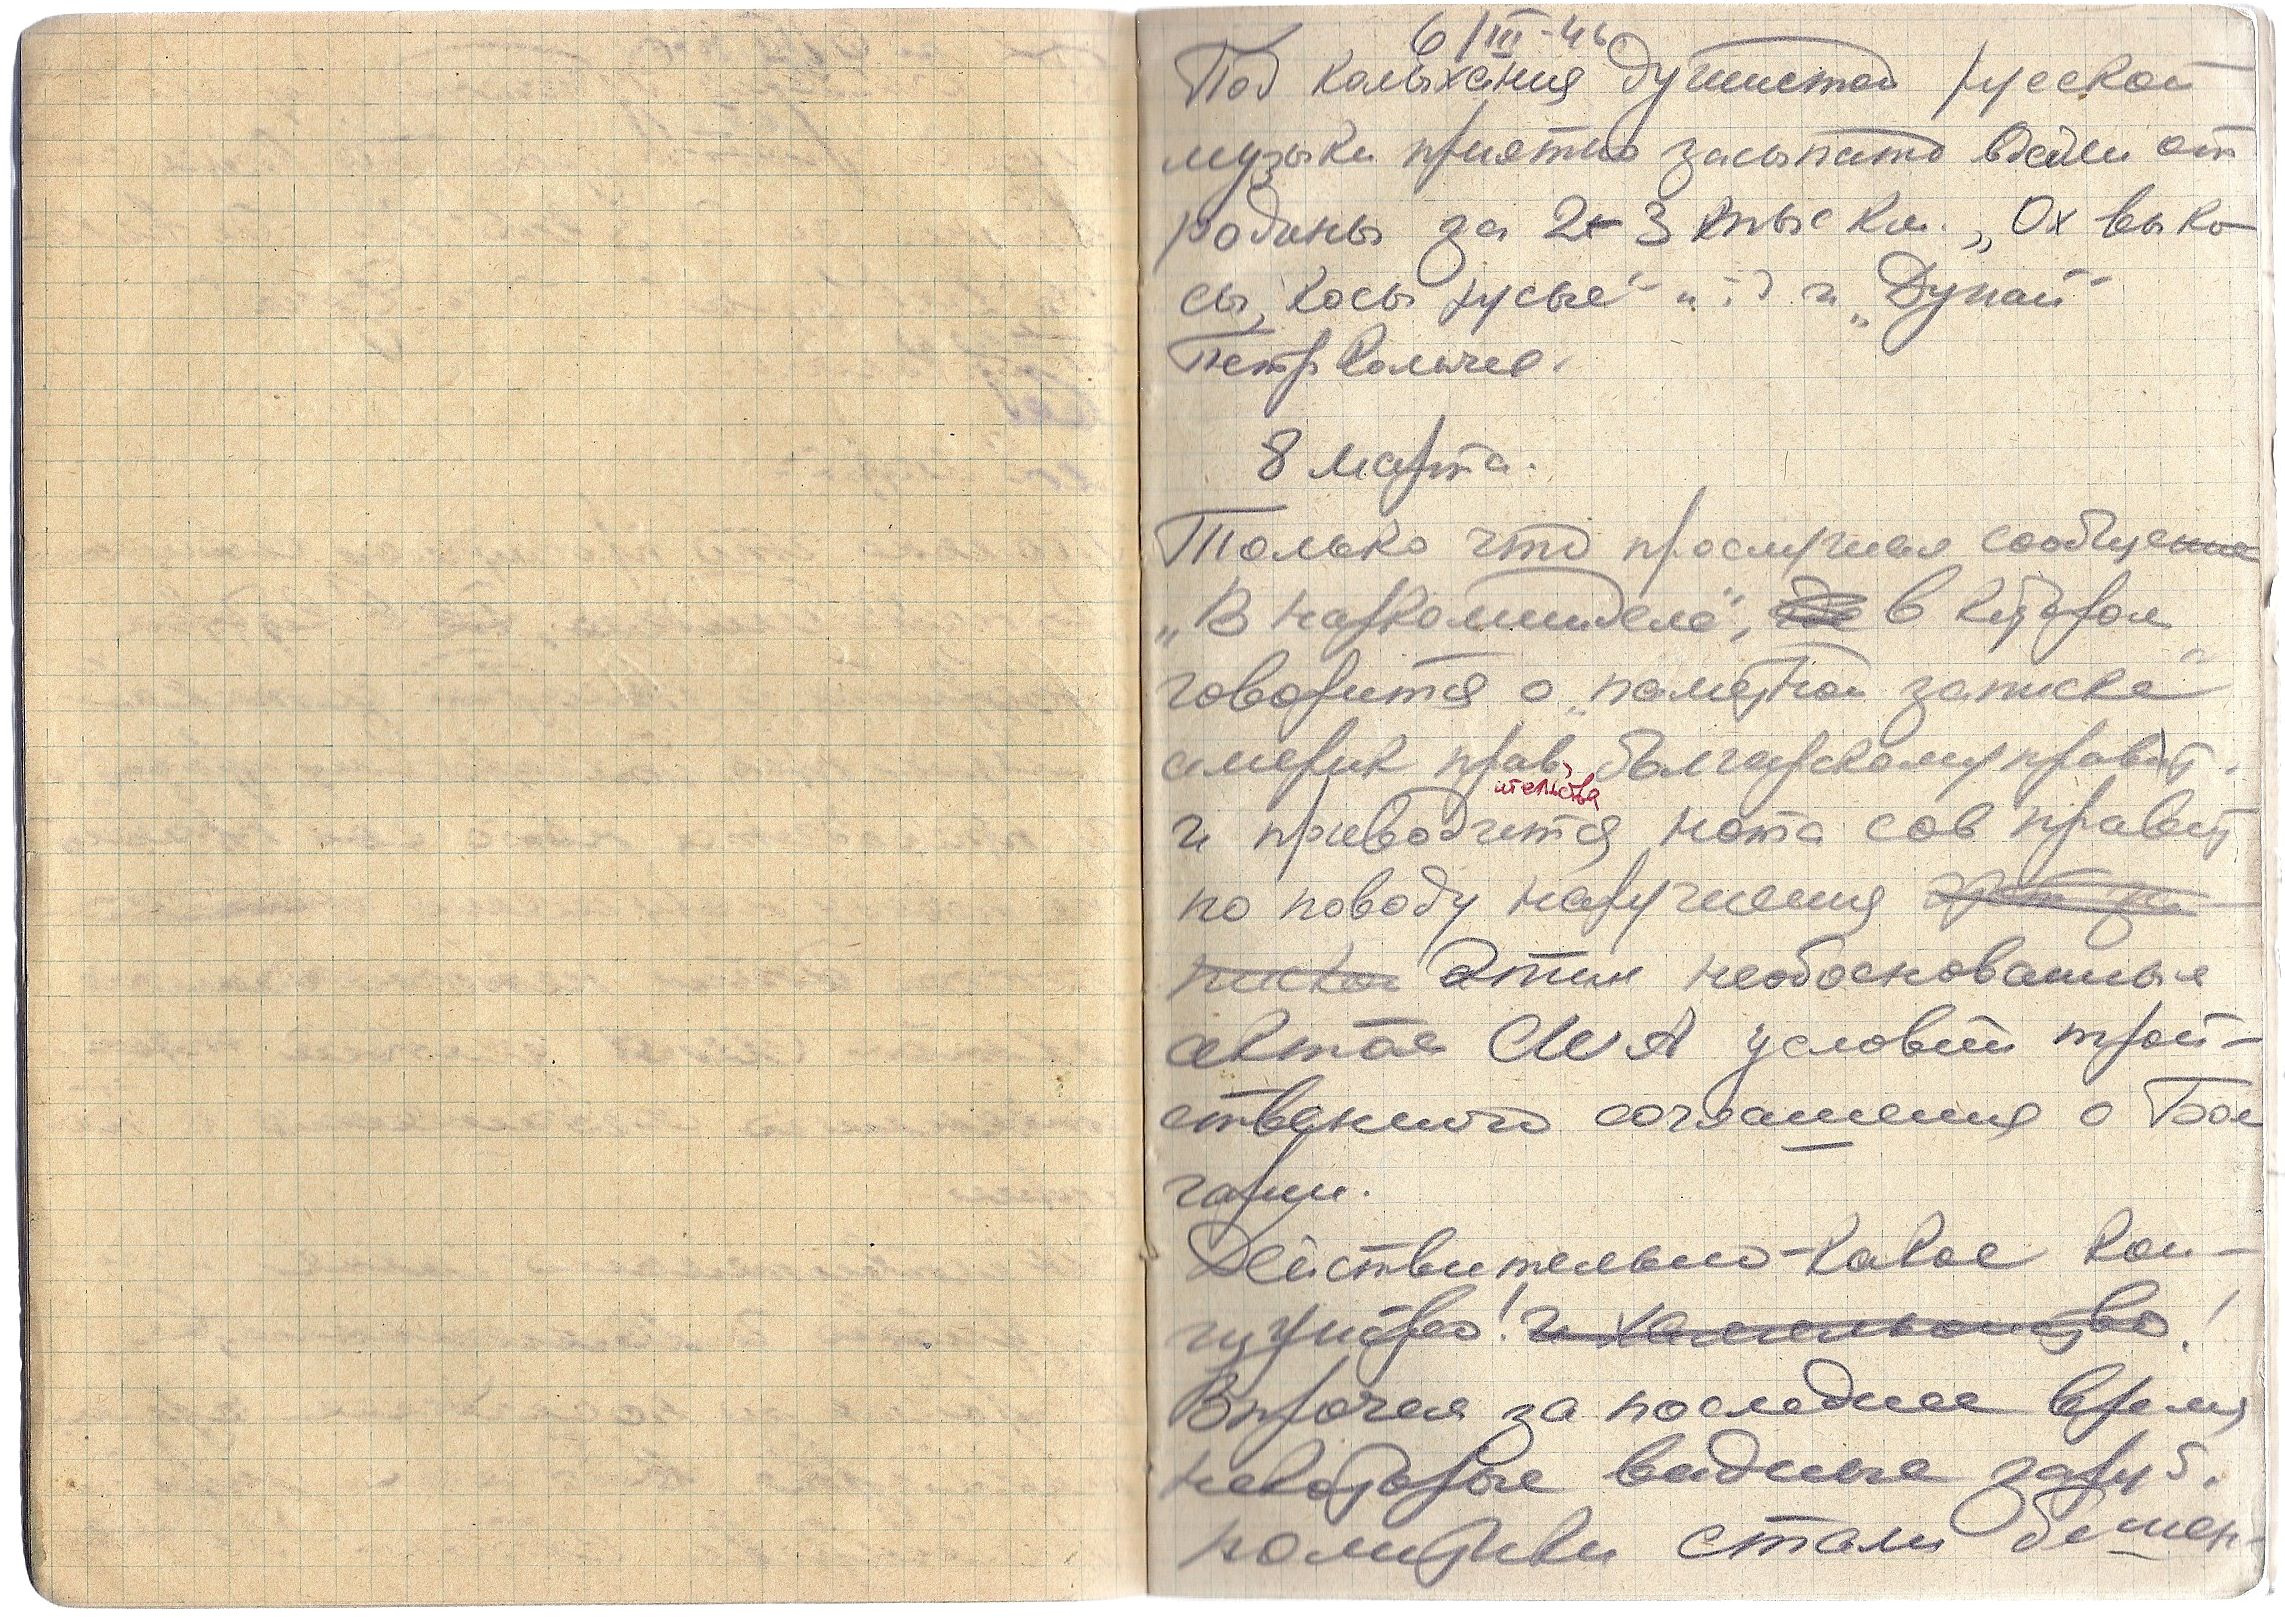 6/III-46
Под колыхания душистой русской
музыки приятно засыпать вдали от
родины за 2-3 тыс км. „Ох вы ко-
сы, косы русые" и „Дунай"
Петр
8 марта.
Только что прослушал сообщение
„В наркоминделе", в котором
говорится о „памятной записке"
америк прав. болгарскому правит.
ительства
и приводится нота сов правит
по поводу нарушения
этим необоснованные
актае США условий трой-
ственного соглашения о Бол
гарии.
Действительно-какое кои-
Впрочем за последнее время
некоторые видные заруб.
политики стали бешен-